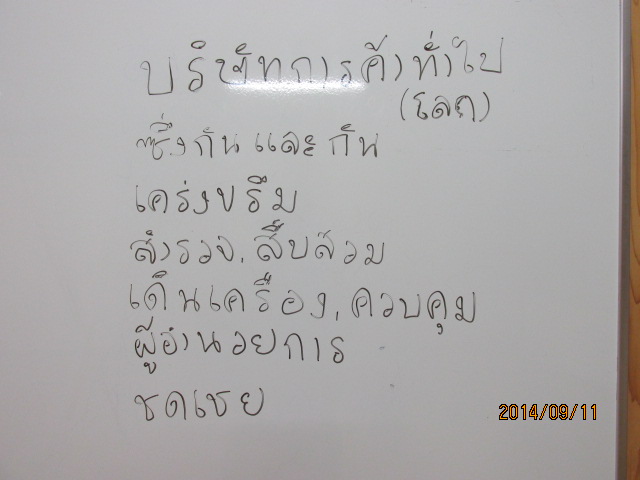 บริษัทการค้าทั่วไป
(โลก)
ซึ่งกันและกัน
เคร่งขรึม
สำรวจ, สืบสวม
เดินเครื่อง, ควบคุม
ผู้อำนวยการ
ชดเชย
2014/09/11